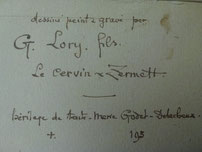 dessiné peint & gravé par
G. Lory, fils.
Le Cervin & Zermatt.
héritage de tante-Marie Godet-
+ 195